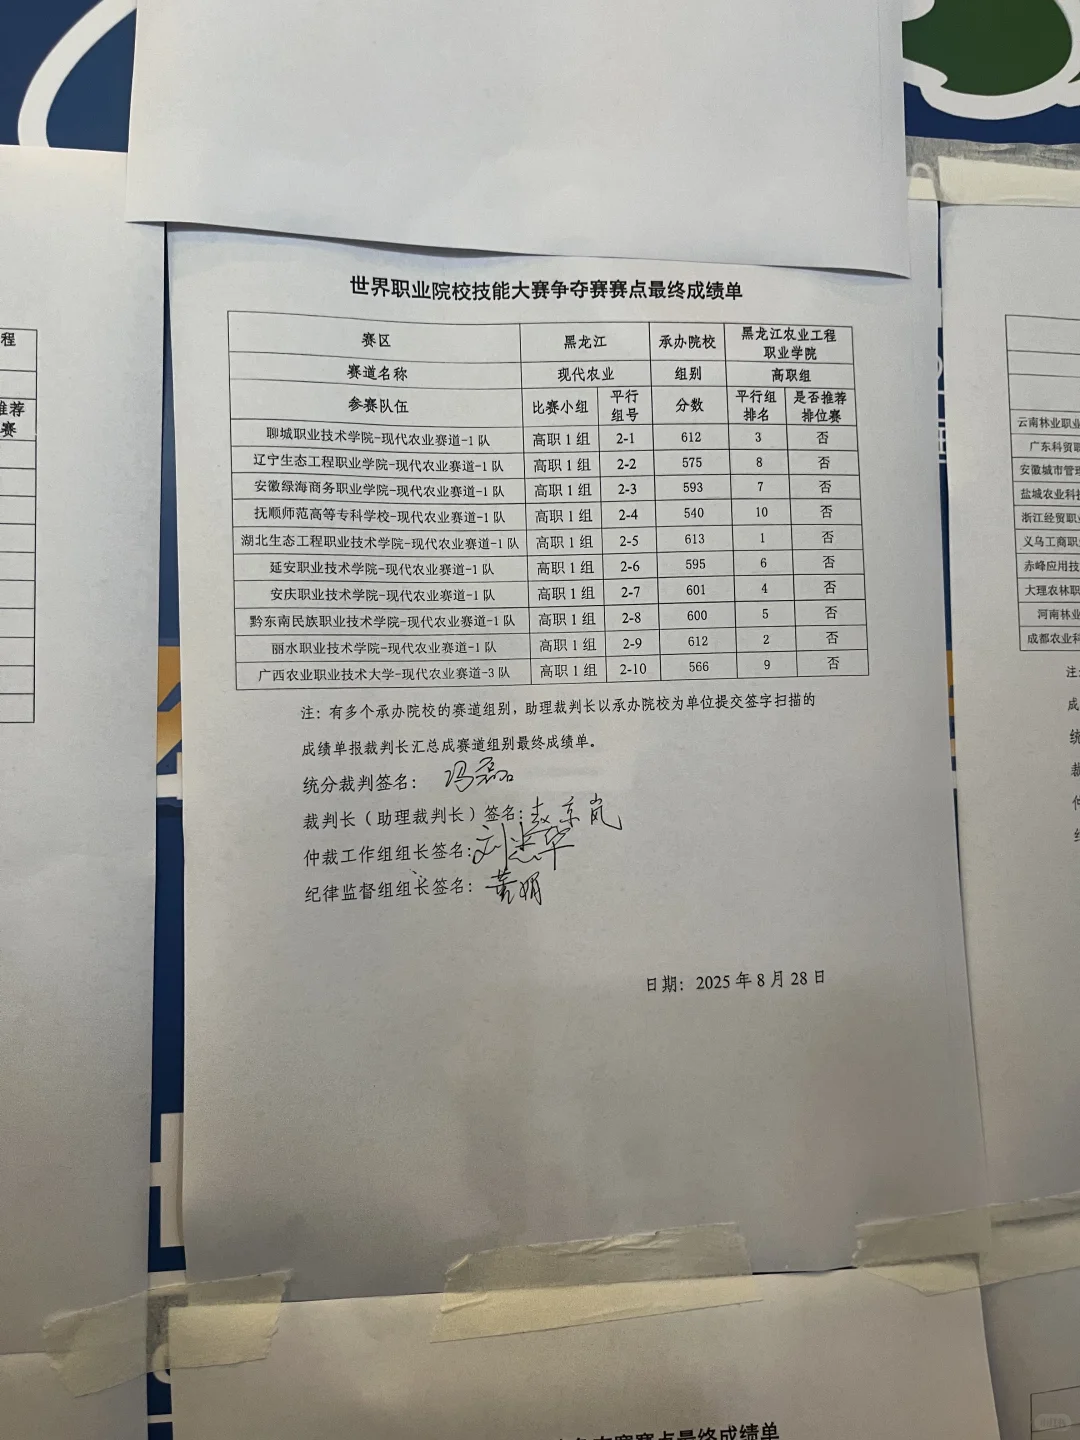 世界职业院校技能大赛争夺赛赛点最终成绩单
赛区 黑龙江 承办院校 黑龙江农业工程职业学院
赛道名称 现代农业 组别 高职组
参赛队伍 比赛小组 平行组号 分数 平行组排名 是否推荐排位赛
聊城职业技术学院-现代农业赛道-1队 高职1组 2-1 612 3 否
辽宁生态工程职业学院-现代农业赛道-1队 高职1组 2-2 575 8 否
安徽绿海商务职业学院-现代农业赛道-1队 高职1组 2-3 593 7 否
抚顺师范高等专科学校-现代农业赛道-1队 高职1组 2-4 540 10 否
湖北生态工程职业技术学院-现代农业赛道-1队 高职1组 2-5 613 1 否
延安职业技术学院-现代农业赛道-1队 高职1组 2-6 595 6 否
安庆职业技术学院-现代农业赛道-1队 高职1组 2-7 601 4 否
黔东南民族职业技术学院-现代农业赛道-1队 高职1组 2-8 600 5 否
丽水职业技术学院-现代农业赛道-1队 高职1组 2-9 612 2 否
广西农业职业技术大学-现代农业赛道-3队 高职1组 2-10 566 9 否
注：有多个承办院校的赛道组别，助理裁判长以承办院校为单位提交签字扫描的
成绩单报裁判长汇总成赛道组别最终成绩单。
统分裁判签名：冯磊
裁判长（助理裁判长）签名：
仲裁工作组组长签名：
纪律监督组组长签名：黄娟
日期：2025年8月28日
程
推荐
赛
云南林业职业
广东科贸职
安徽城市管理
盐城农业科技
浙江经贸职业
义乌工商职业
赤峰应用技
大理农林职
河南林业
成都农业科
注:
成
统
裁
仲
纪
争夺赛赛点最终成绩单